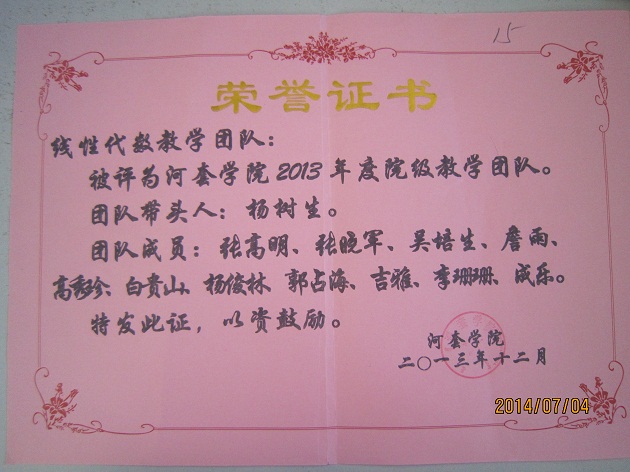 15
荣誉证书
线性代数教学团队：
被评为河套学院2013年度院级教学团队。
团队带头人：杨树生。
团队成员：张高明、张晓军、吴培生、詹雨、
高秀珍、白贵山、杨俊林、郭占海、吉雅、李珊珊、咸乐。
特发此证，以资鼓励。
河套学院
二〇一三年十二月
2014/07/04